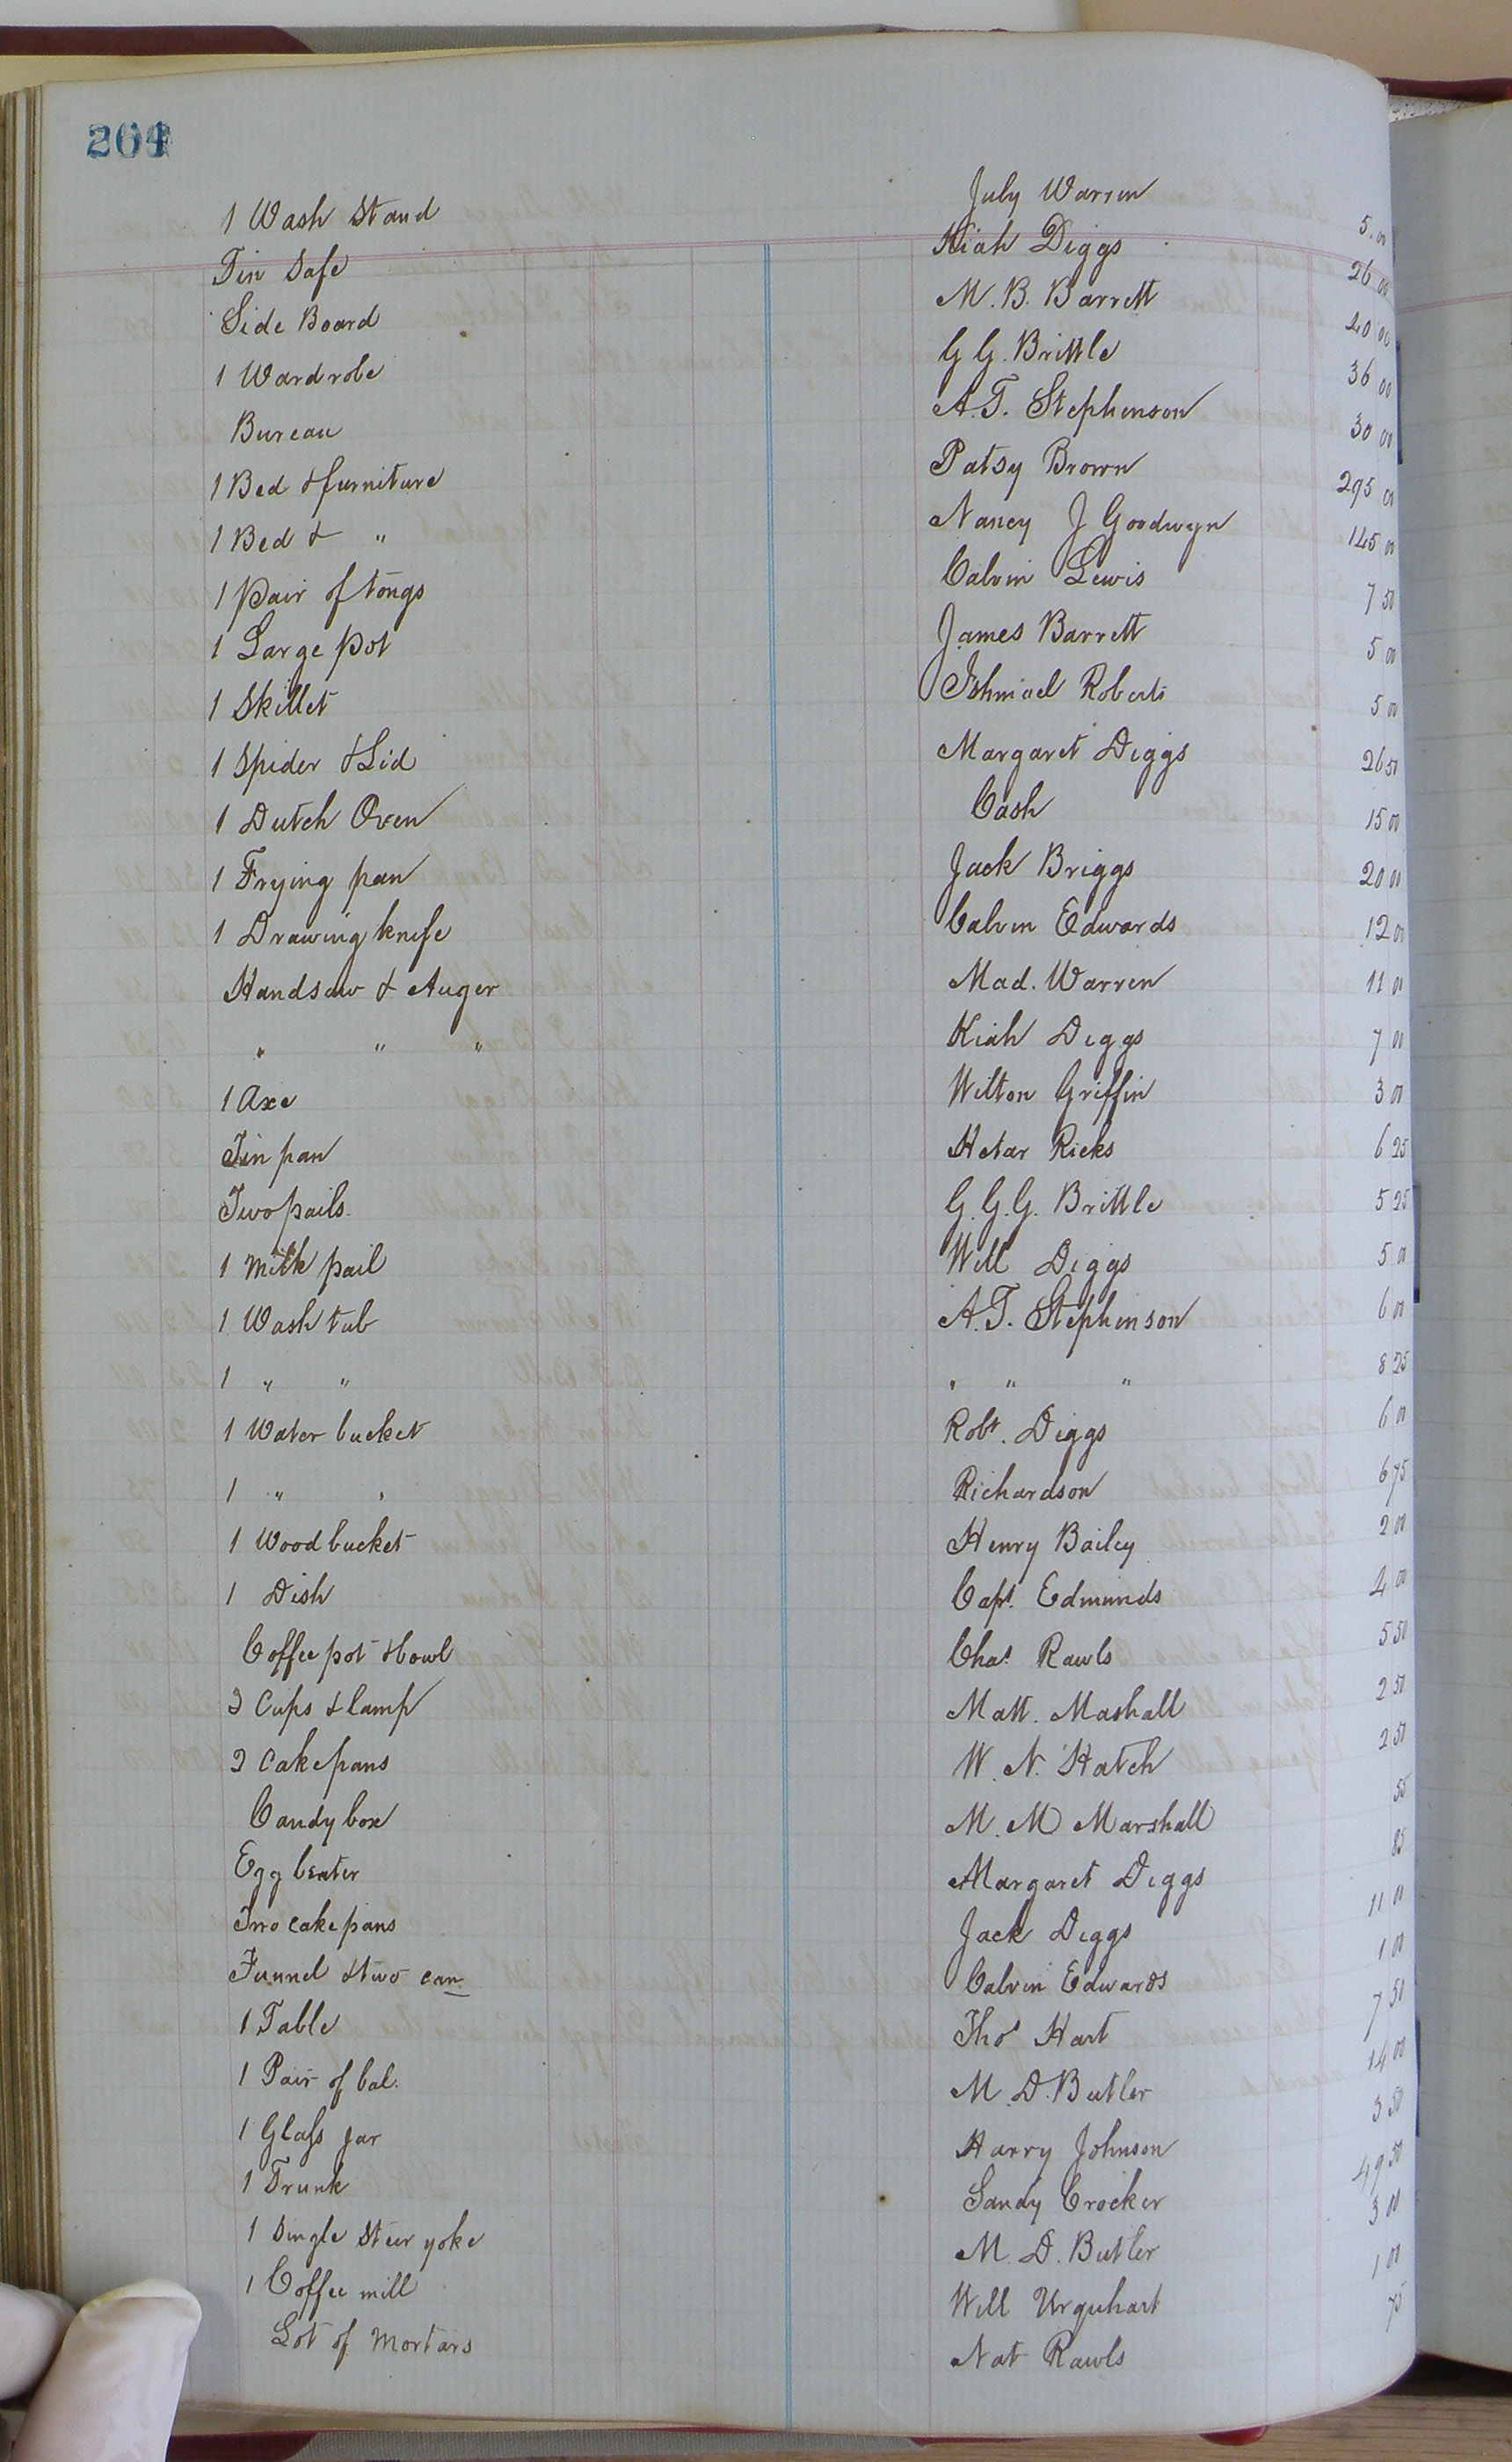 264
1 Wash Stand July Warren 5.00
Tin Safe Kiah Diggs 26 00
Side Board M. B. Barrett 40 00
1 Wardrobe G G. Brittle 36 00
Bureau A. T. Stephenson 30 00
1 Bed & furniture Patsy Brown 295 00
1 Bed & " Nancy J Goodwyn 145 00
1 pair of tongs Calvin Lewis 7 50
1 Large pot James Barrett 5 00
1 Skillet Ishmael Roberts 5 00
1 Spider & Lid Margaret Diggs 26 50
1 Dutch Oven Cash 15 00
1 Frying pan Jack Briggs 20 00
1 Drawing knife Calvin Edwards 12 00
Handsaw & Auger Mad. Warren 11 00
" " " Kiah Diggs 7 00
1 Axe Wilton Griffin 3 00
Tin pan Hetar Ricks 6 25
Two pails. G. G. G. Brittle 5 25
1 Milk pail Will Diggs 5 00
1 Wash tub A. T. Stephenson 6 00
1 " " " " " 8 25
1 Water bucket Robt. Diggs 6 00
1 " " Richardson 6 75
1 Wood bucket Henry Bailey 2 00
1 Dish Capt. Edmunds 4 00
Coffee pot & bowl Chas. Rawls 5 50
3 Cups & lamp Matt. Mashall 2 50
2 Cake pans W. N. Hatch 2 50
Candy box M. M Marshall 55
Egg beater Margaret Diggs 85
Two cake pans Jack Diggs 11 00
Funnel & two can Calvin Edwards 1 00
1 Table Thos Hart 7 50
1 Pair of bal. M. D. Butler 14 00
1 Glass jar Harry Johnson 3 50
1 Trunk Sandy Crocker 49 50
1 Single Steer yoke M. D. Butler 3 00
1 Coffee mill Will Urquhart 1 00
Lot of mortars Nat Rawls 75